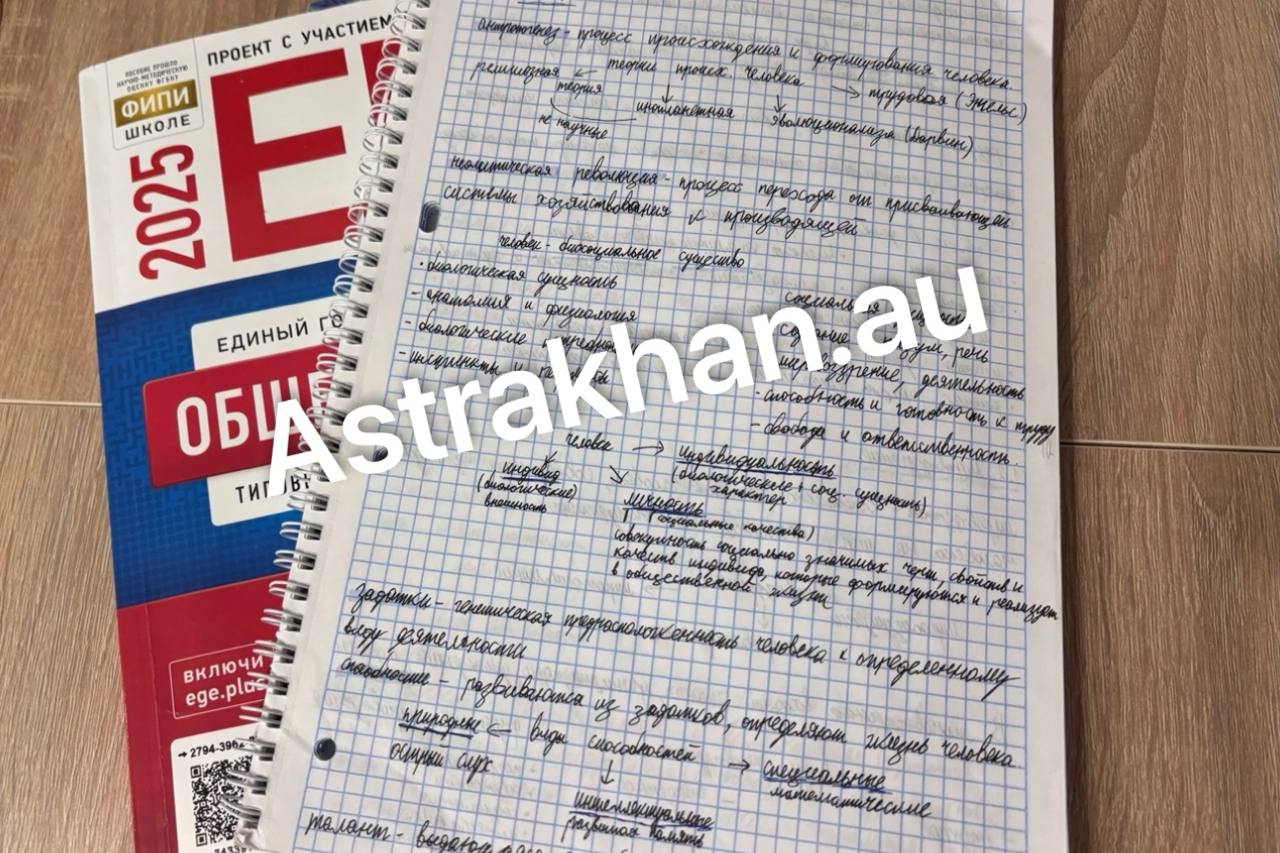 ПРОЕКТ С УЧАСТИЕМ
ПОСОБИЕ ПРОШЛО
НАУЧНО-МЕТОДИЧЕСКУЮ
ОЦЕНКУ ФГБНУ
ФИПИ
ШКОЛЕ
2025
Е
ЕДИНЫЙ ГО
ОБЩЕ
ТИПОВ
ВКЛЮЧИ
ege.plus
антропогенез - процесс происхождения и формирования человека.
религиозная ← теории происх. человека → трудовая (Энгельс)
теория
инопланетная
эволюционализа (Дарвин)
не научные
неолитическая революция - процесс перехода от присваивающей
системы хозяйствования к производящей
человек - биосоциальное существо
• биологическая сущность
- анатомия и физиология
- биологические
- инстинкты и
речь
мировоззрение, деятельность
- способность и готовность к труду
- свобода и ответственность.
Astrakhan.au
человек → индивидуальность
индивид
(биологические + соц. сущность)
(биологические)
характер
внешность
личность
(социальные качества)
совокупность социально значимых черт, свойств и
качеств индивида, которые формируются и реализует
в общественной жизни
задатки - генетическая предрасположенность человека к определенному
виду деятельности
способности - развиваются из задатков, определяют жизнь человека
природные ← виды способностей → специальные
острый слух
математические
интеллектуальные
развитая память
талант -